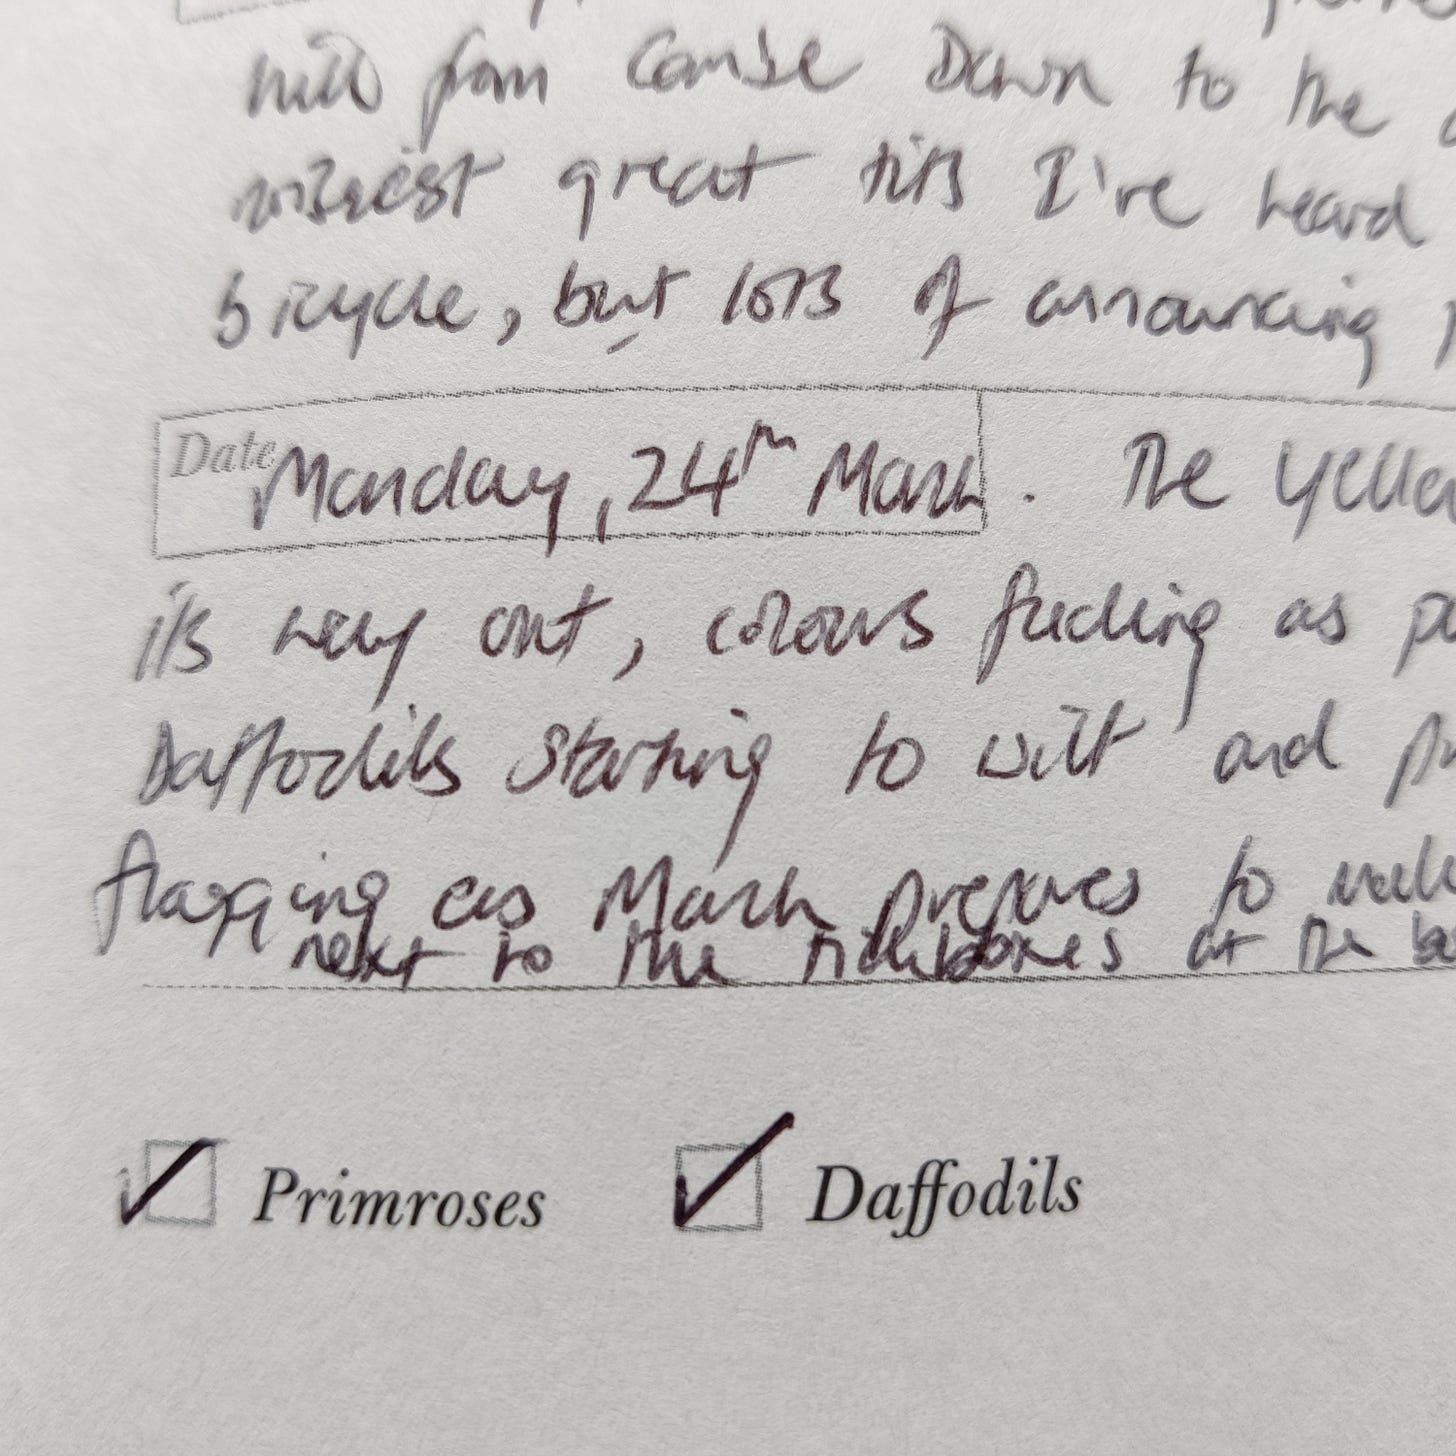 from Combe Down to the
noisiest great tits I've heard
bicycle, but lots of announcing
Date Monday, 24th March. The
its way out, colours fading as
Daffodils starting to wilt and
flagging as March prepares to
next to the at the
Primroses Daffodils